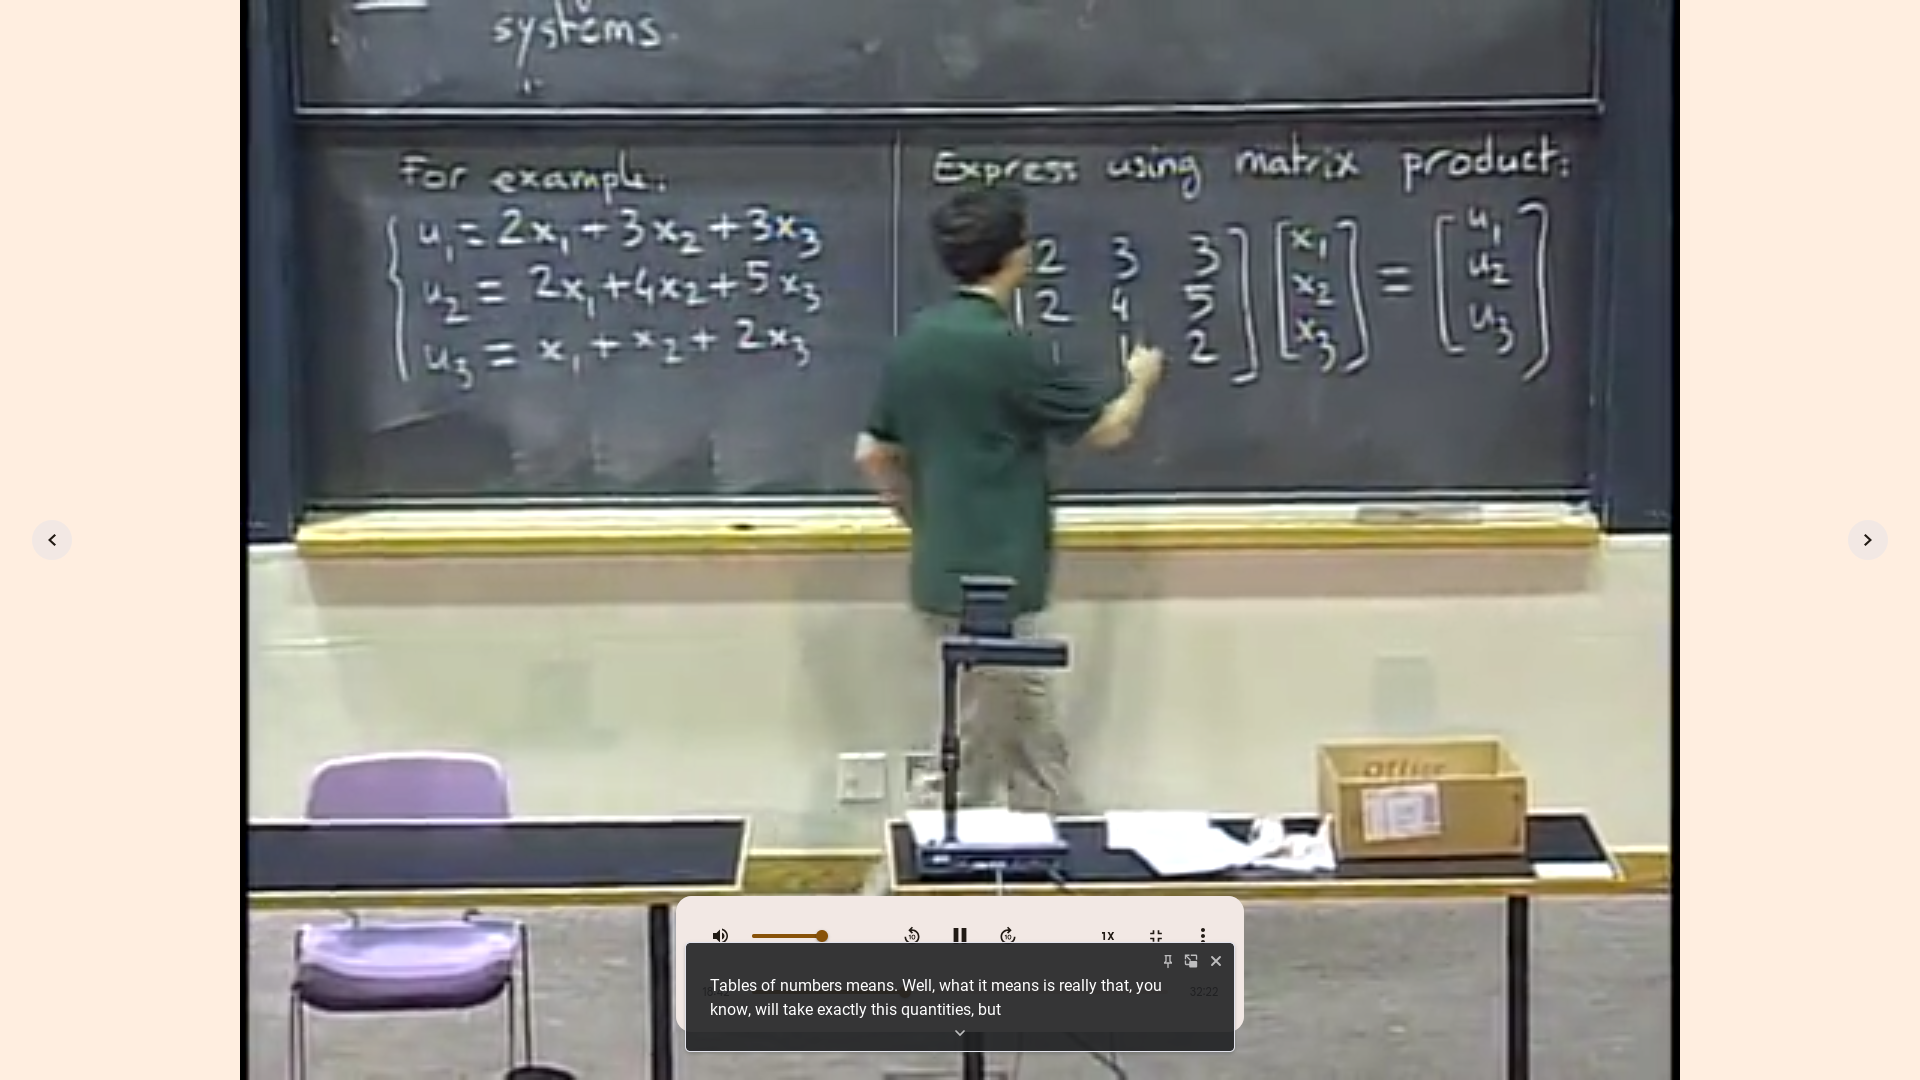 systems.
For example:
u₁ = 2x₁ + 3x₂ + 3x₃
u₂ = 2x₁ + 4x₂ + 5x₃
u₃ = x₁ + x₂ + 2x₃
Express using matrix product:
2 3 3
2 4 5
1 1 2
x₁
x₂
x₃
=
u₁
u₂
u₃
Office
10
10
1X
Tables of numbers means. Well, what it means is really that, you
know, will take exactly this quantities, but
32:22